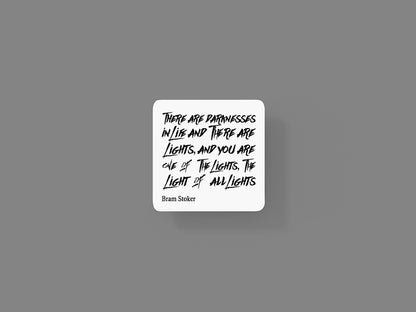 There are darknesses
in Life and There are
Lights, and you are
one of The Lights, The
Light of all Lights
Bram Stoker